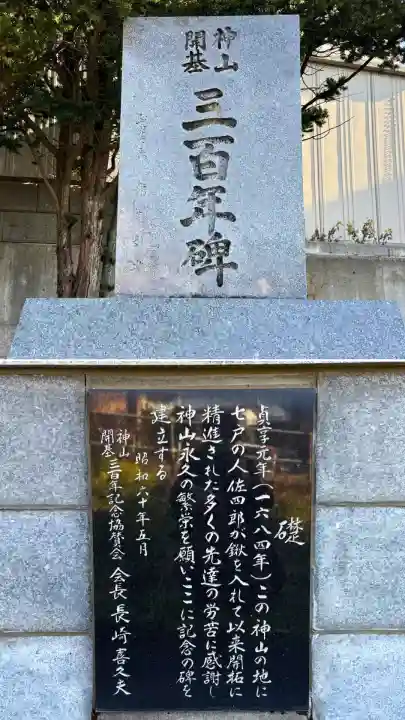 神山
開基
三百年碑
礎
貞享元年(一六八四年)この神山の地に
七戸の人佐四郎が鍬を入れて以来開拓に
精進された多くの先達の労苦に感謝し
神山永久の繁栄を願いここに記念の碑を
建立する
昭和六十年五月
神山
開基
三百年記念協賛会 会長 長崎喜久夫